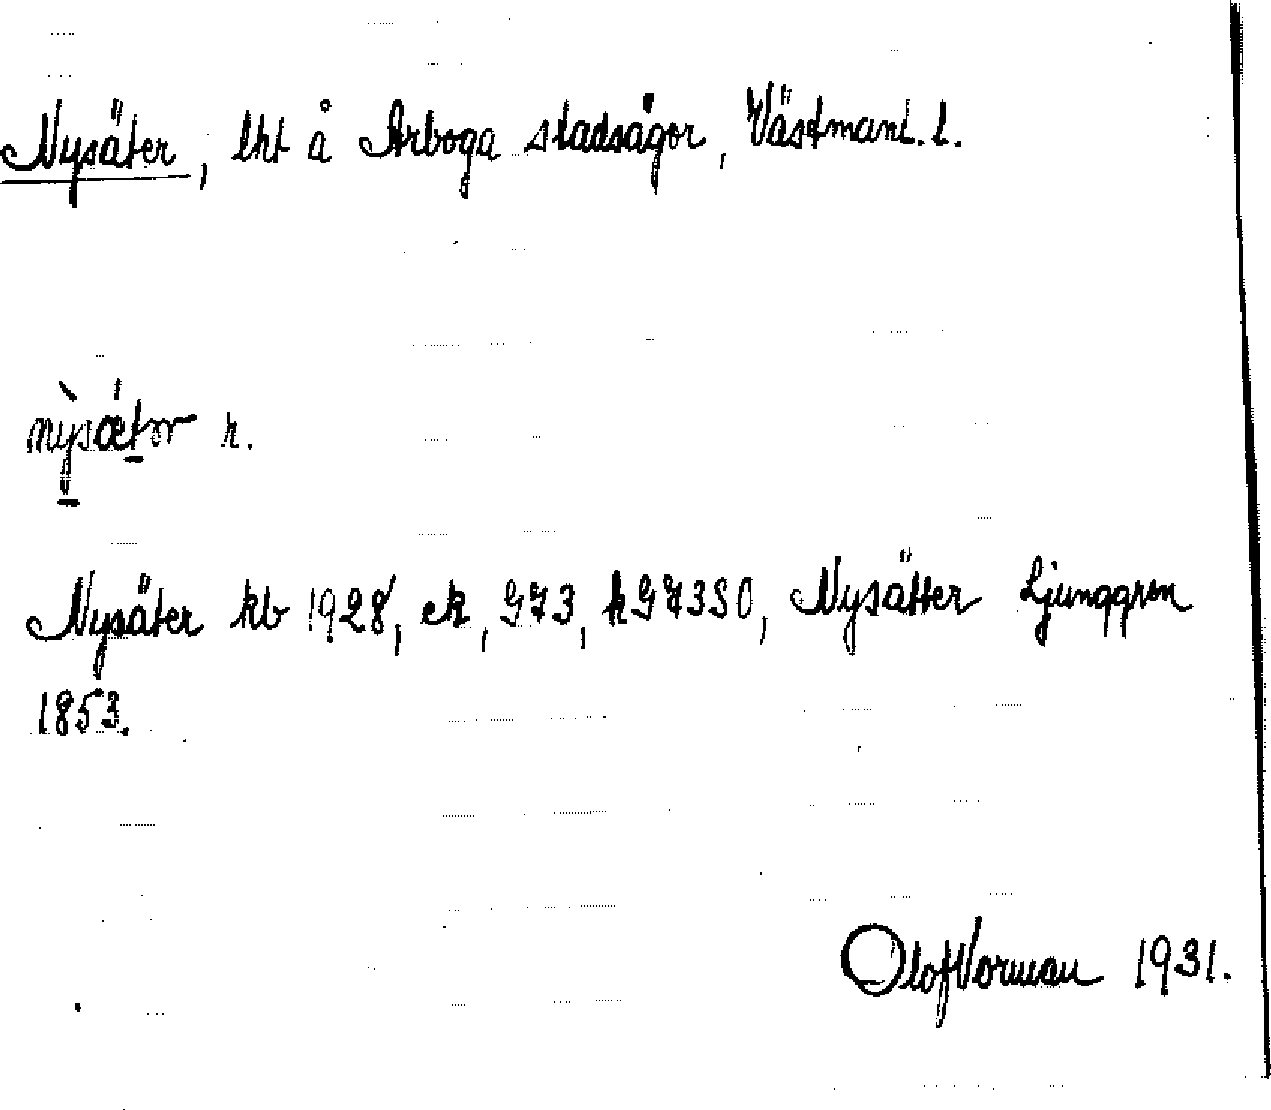 Nysäter, lht å Arboga stadsägor, Västmanl. l.
nysætər n.
Nysäter kb 1928, ek, G73, hG73SO, Nysätter Ljunggren
1853.
Olof Vorman 1931.